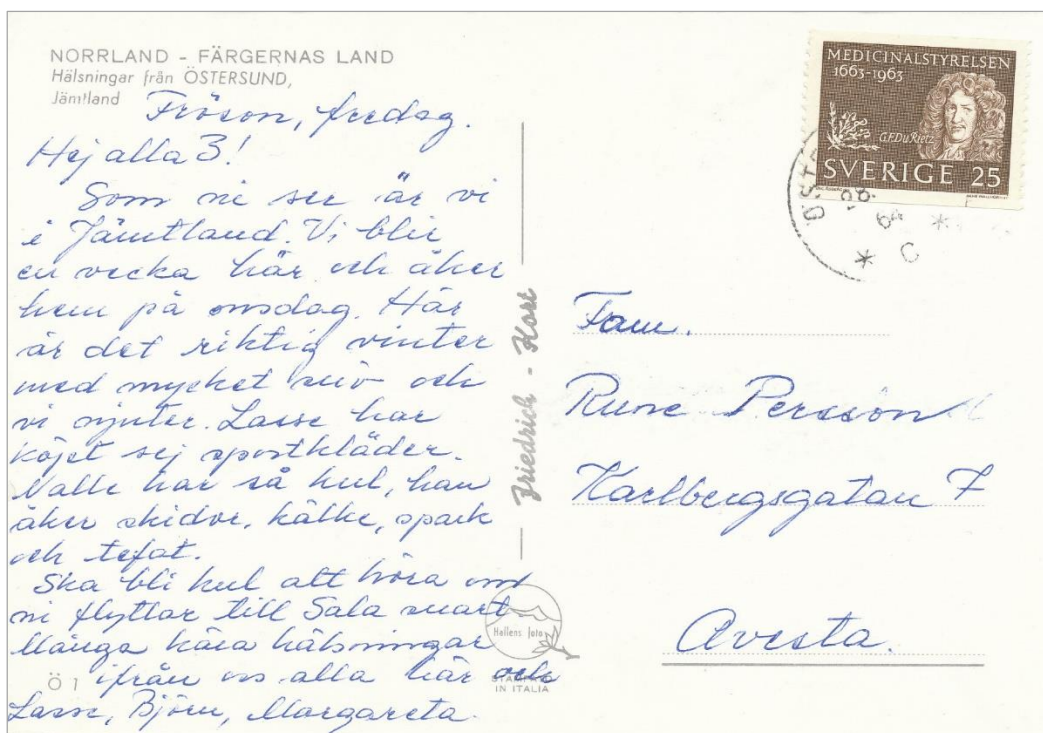 NORRLAND - FÄRGERNAS LAND
Hälsningar från ÖSTERSUND,
Jämtland
Frösön, fredag.
Hej alla 3!
Som ni ser är vi
i Jämtland. Vi blir
en vecka här och åker
hem på onsdag. Här
är det riktig vinter
med mycket snö och
vi njuter. Lasse har
köpt sej sportkläder.
Nalle har så kul, han
åker skidor, kälke, spark
och tefat.
Ska bli kul att höra om
ni flyttar till Sala snart
Många kära hälsningar
ifrån oss alla här och
Lasse, Björn, Margareta.
Ö 1
Friedrich - Kort
Hallens foto
IN ITALIA
MEDICINALSTYRELSEN
1663-1963
G.F.Du Rietz
SVERIGE 25
64
* C *
Fam.
Rune Persson
Karlbergsgatan 7
Avesta.